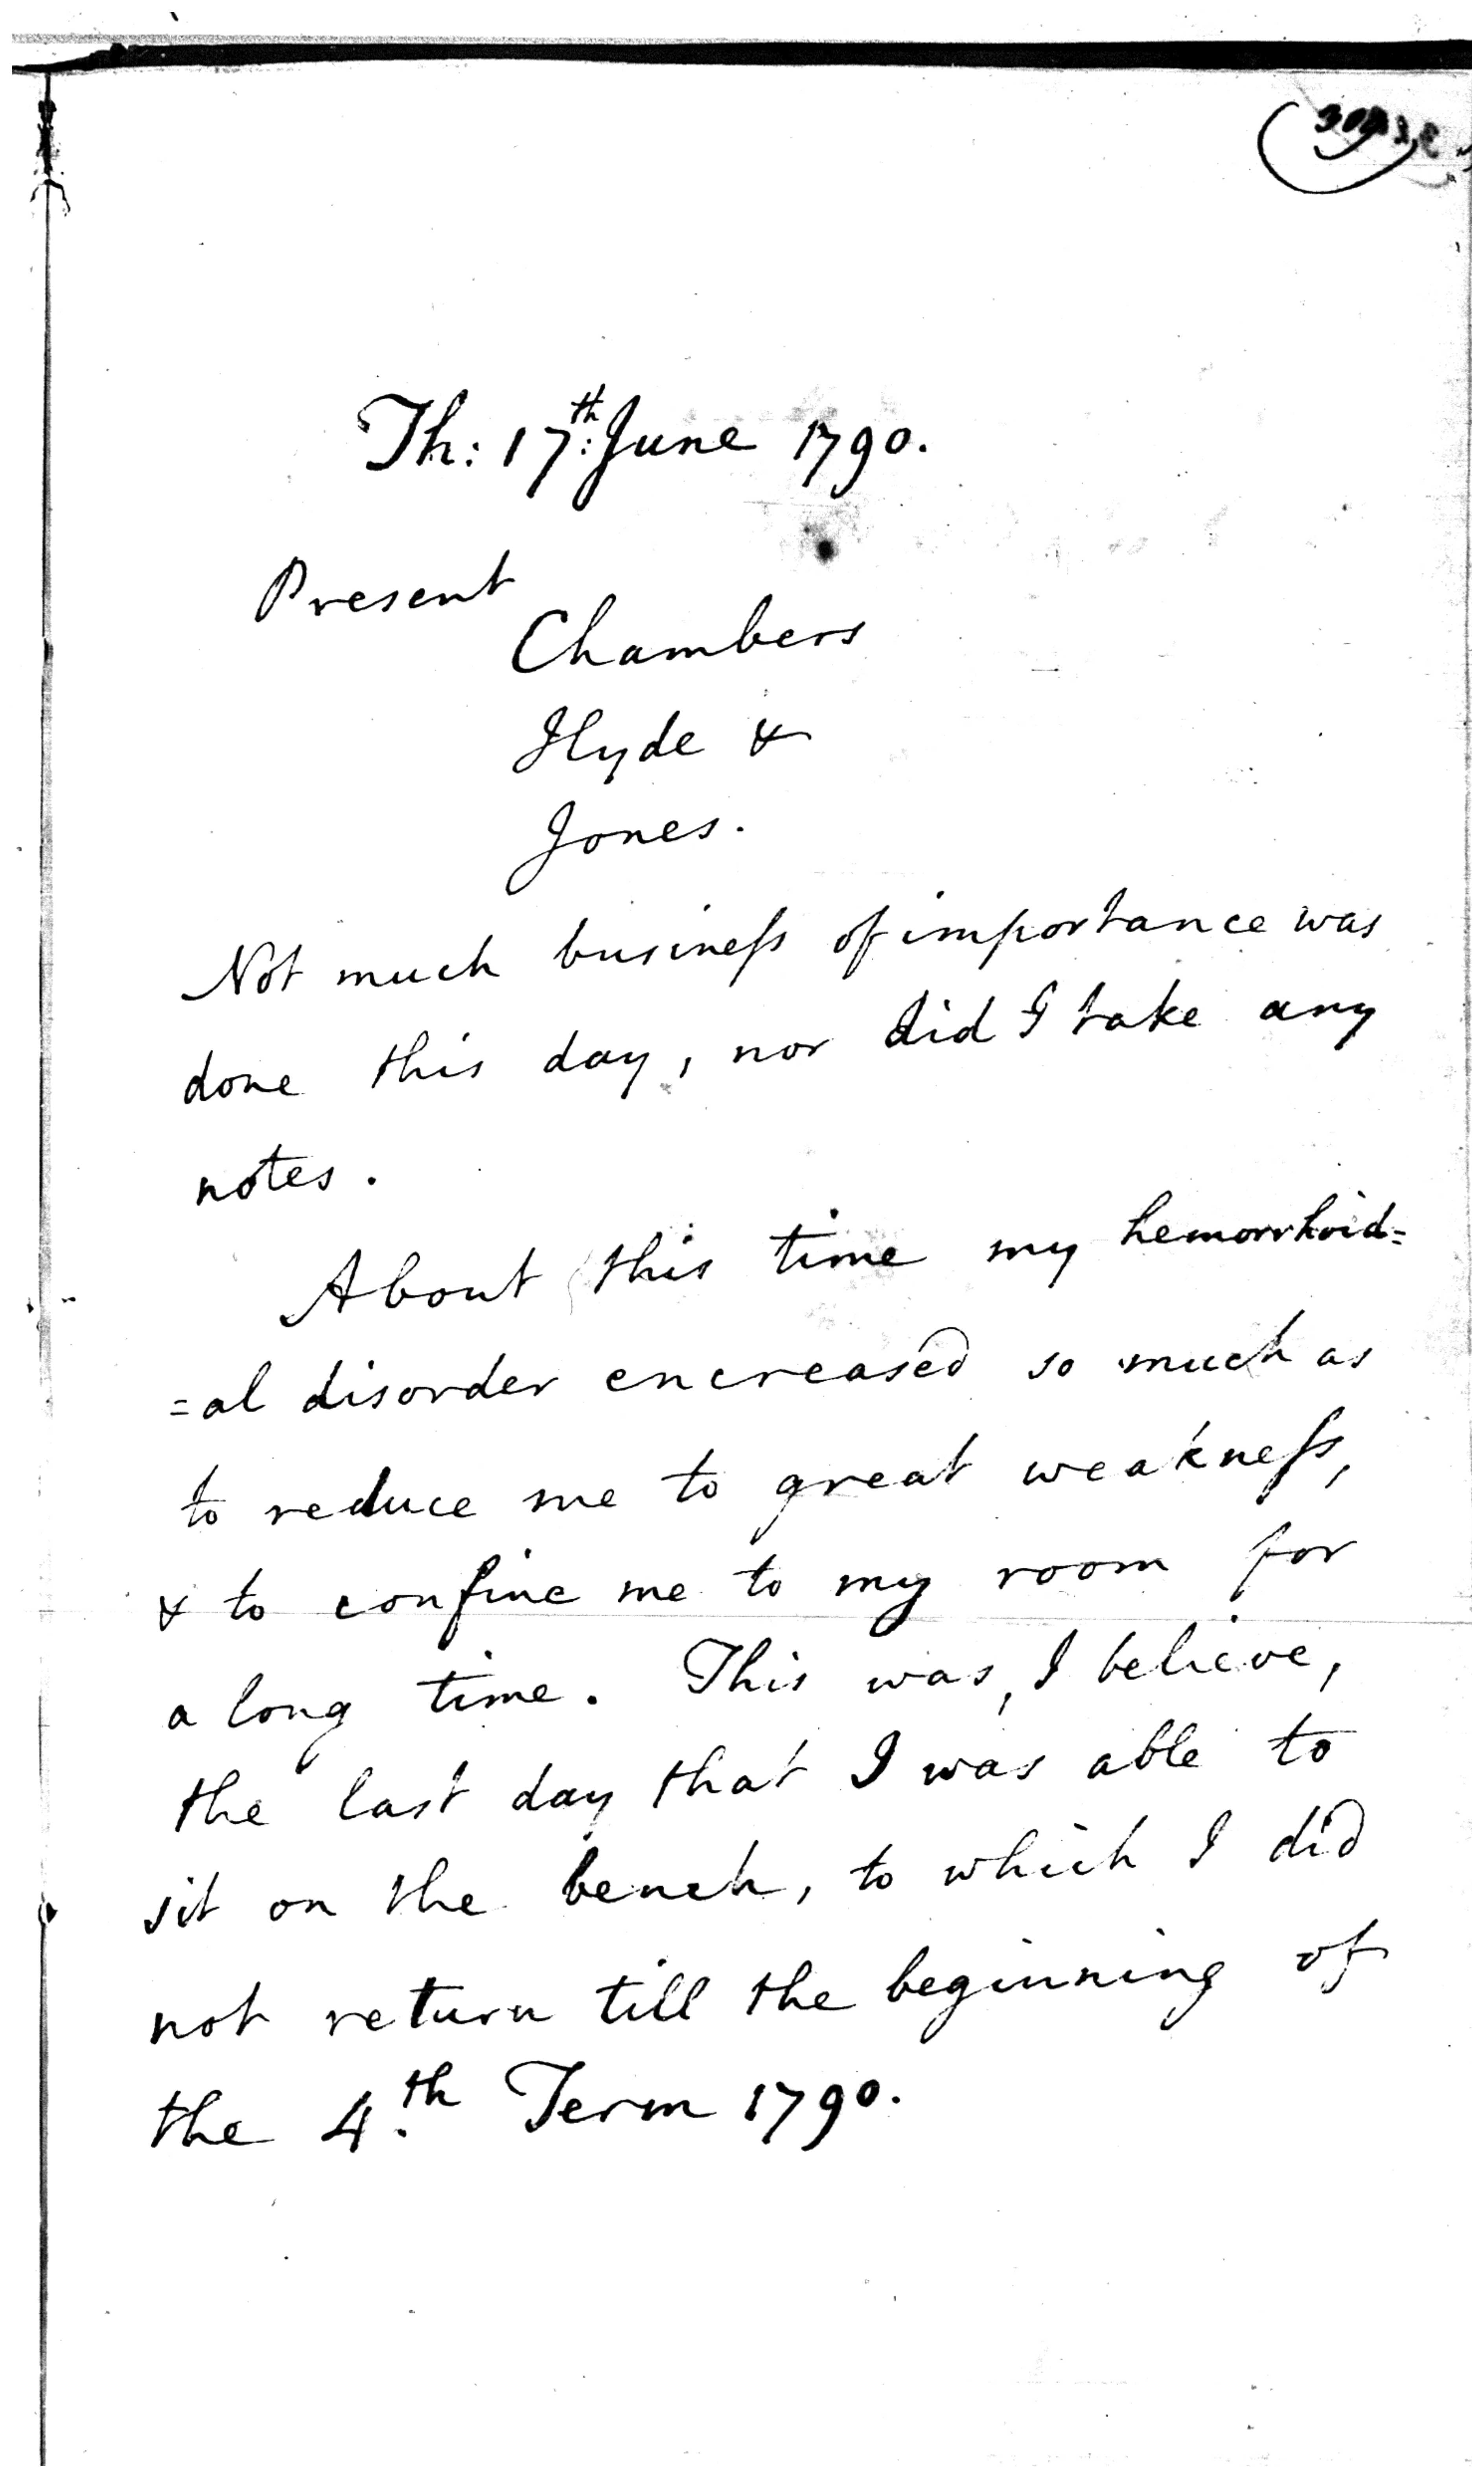 Th: 17.th June 1790.
Present
Chambers
Hyde &
Jones.
Not much busineſs of importance was
done this day, nor did I take any
notes.
About this time my hemorrhoid=
=al disorder encreased so much as
to reduce me to great weakneſs,
& to confine me to my room for
a long time. This was, I believe,
the last day that I was able to
sit on the bench, to which I did
not return till the beginning of
the 4.th Term 1790.